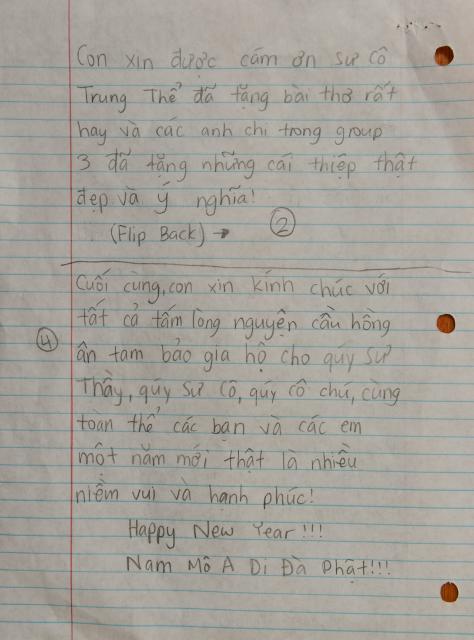 Con xin được cám ơn sư cô
Trung Thể đã tặng bài thơ rất
hay và các anh chi trong group
3 đã tặng những cái thiệp thật
đẹp và ý nghĩa!
(Flip Back) → ②
Cuối cùng, con xin kính chúc với
tất cả tấm lòng nguyện cầu hồng
④ ân tam bảo gia hộ cho qúy sư
Thầy, qúy sư cô, qúy cô chú, cùng
toàn thể các bạn và các em
một năm mới thật là nhiều
niềm vui và hạnh phúc!
Happy New Year!!!
Nam Mô A Di Đà Phật!!!